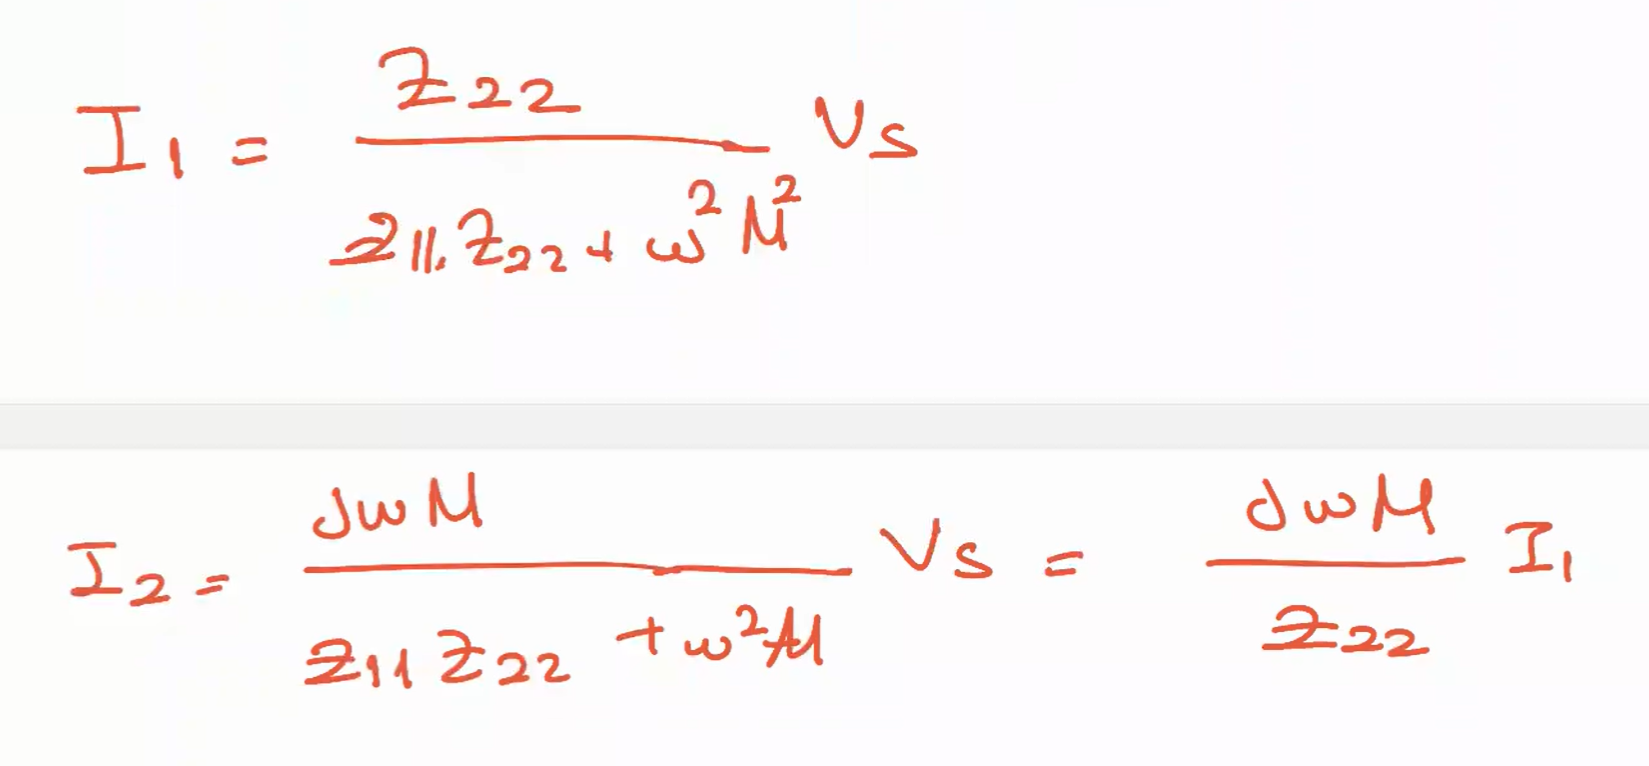 I₁ = Z₂₂ / (Z₁₁.Z₂₂ + ω²M²) Vs
I₂ = jωM / (Z₁₁ Z₂₂ + ω²M) Vs = jωM / Z₂₂ I₁